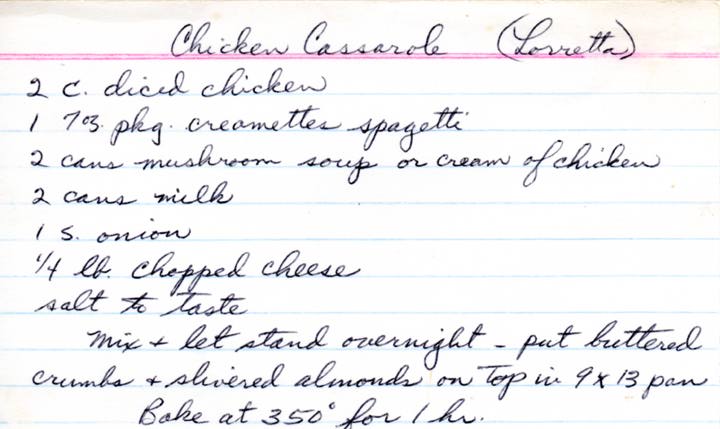 Chicken Cassarole (Lorretta)
2 c. diced chicken
1 7oz. pkg. creamettes spagetti
2 cans mushroom soup or cream of chicken
2 cans milk
1 s. onion
1/4 lb. chopped cheese
salt to taste
Mix + let stand overnight - put buttered
crumbs + slivered almonds on top in 9 x 13 pan
Bake at 350° for 1 hr.